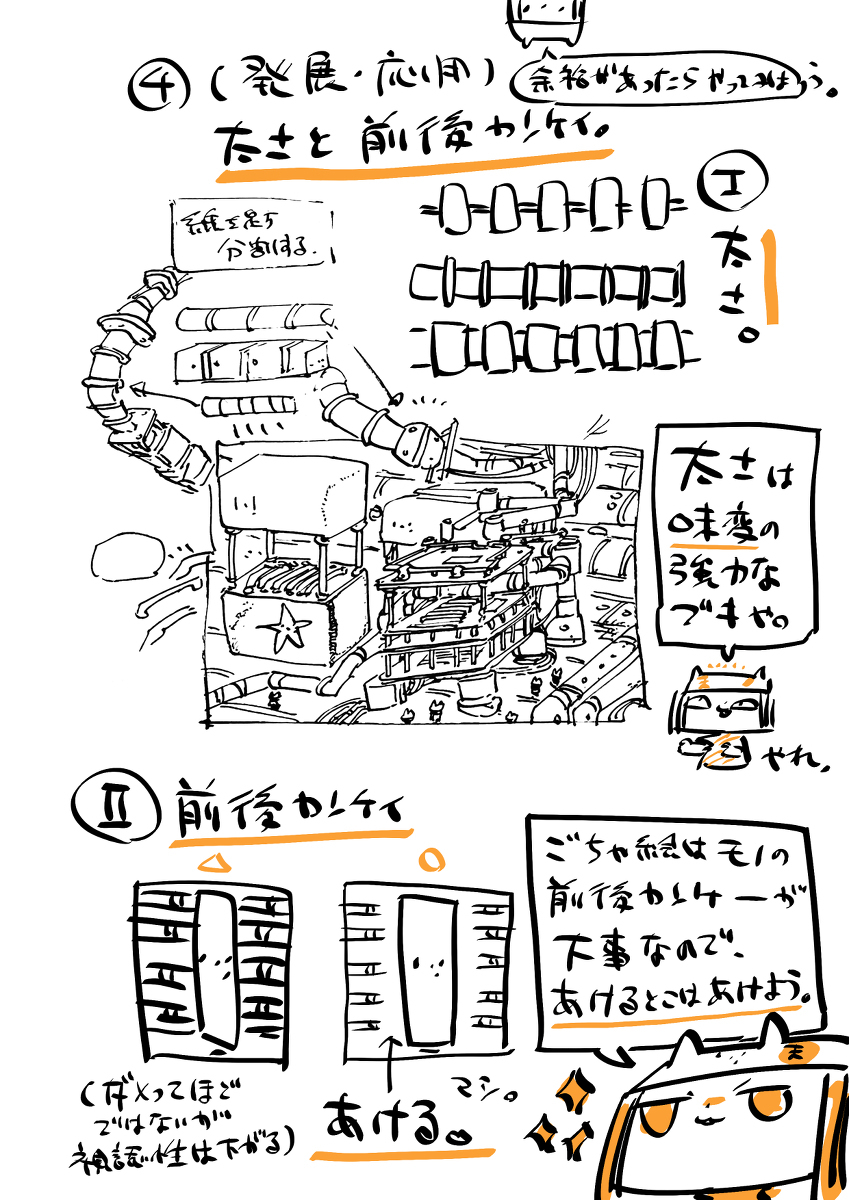 ④(発展・応用)
余裕があったらやってみよう。
太さと前後カンケイ。
Ⅰ
太さ。
線を足す
分割する。
太さは
味変の
強力な
ブキや。
やれ。
Ⅱ 前後カンケイ
△
○
ごちゃ絵はモノの
前後カンケーが
大事なので、
あけるとこはあけよう。
(ダメってほど
ではないが
視認性は下がる)
マシ。
あける。